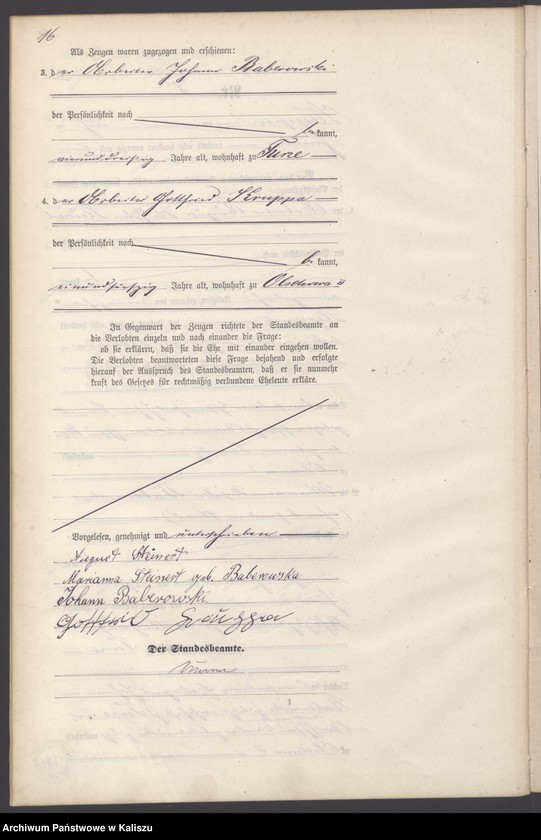 16
Als Zeugen waren zugezogen und erschienen:
3. der Arbeiter Johann Baberowski
der Persönlichkeit nach
be kannt,
vierunddreißig Jahre alt, wohnhaft zu Turze
4. der Arbeiter Gottfried Kruppa
der Persönlichkeit nach
be kannt,
Jahre alt, wohnhaft zu
In Gegenwart der Zeugen richtete der Standesbeamte an
die Verlobten einzeln und nach einander die Frage:
ob sie erklären, daß sie die Ehe mit einander eingehen wollen.
Die Verlobten beantworteten diese Frage bejahend und erfolgte
hierauf der Ausspruch des Standesbeamten, daß er sie nunmehr
kraft des Gesetzes für rechtmäßig verbundene Eheleute erkläre.
Vorgelesen, genehmigt und unterschrieben
August Steinert
Marianna Steinert geb. Baberowska
Johann Baberowski
Gottfried
Der Standesbeamte.
Archiwum Państwowe w Kaliszu